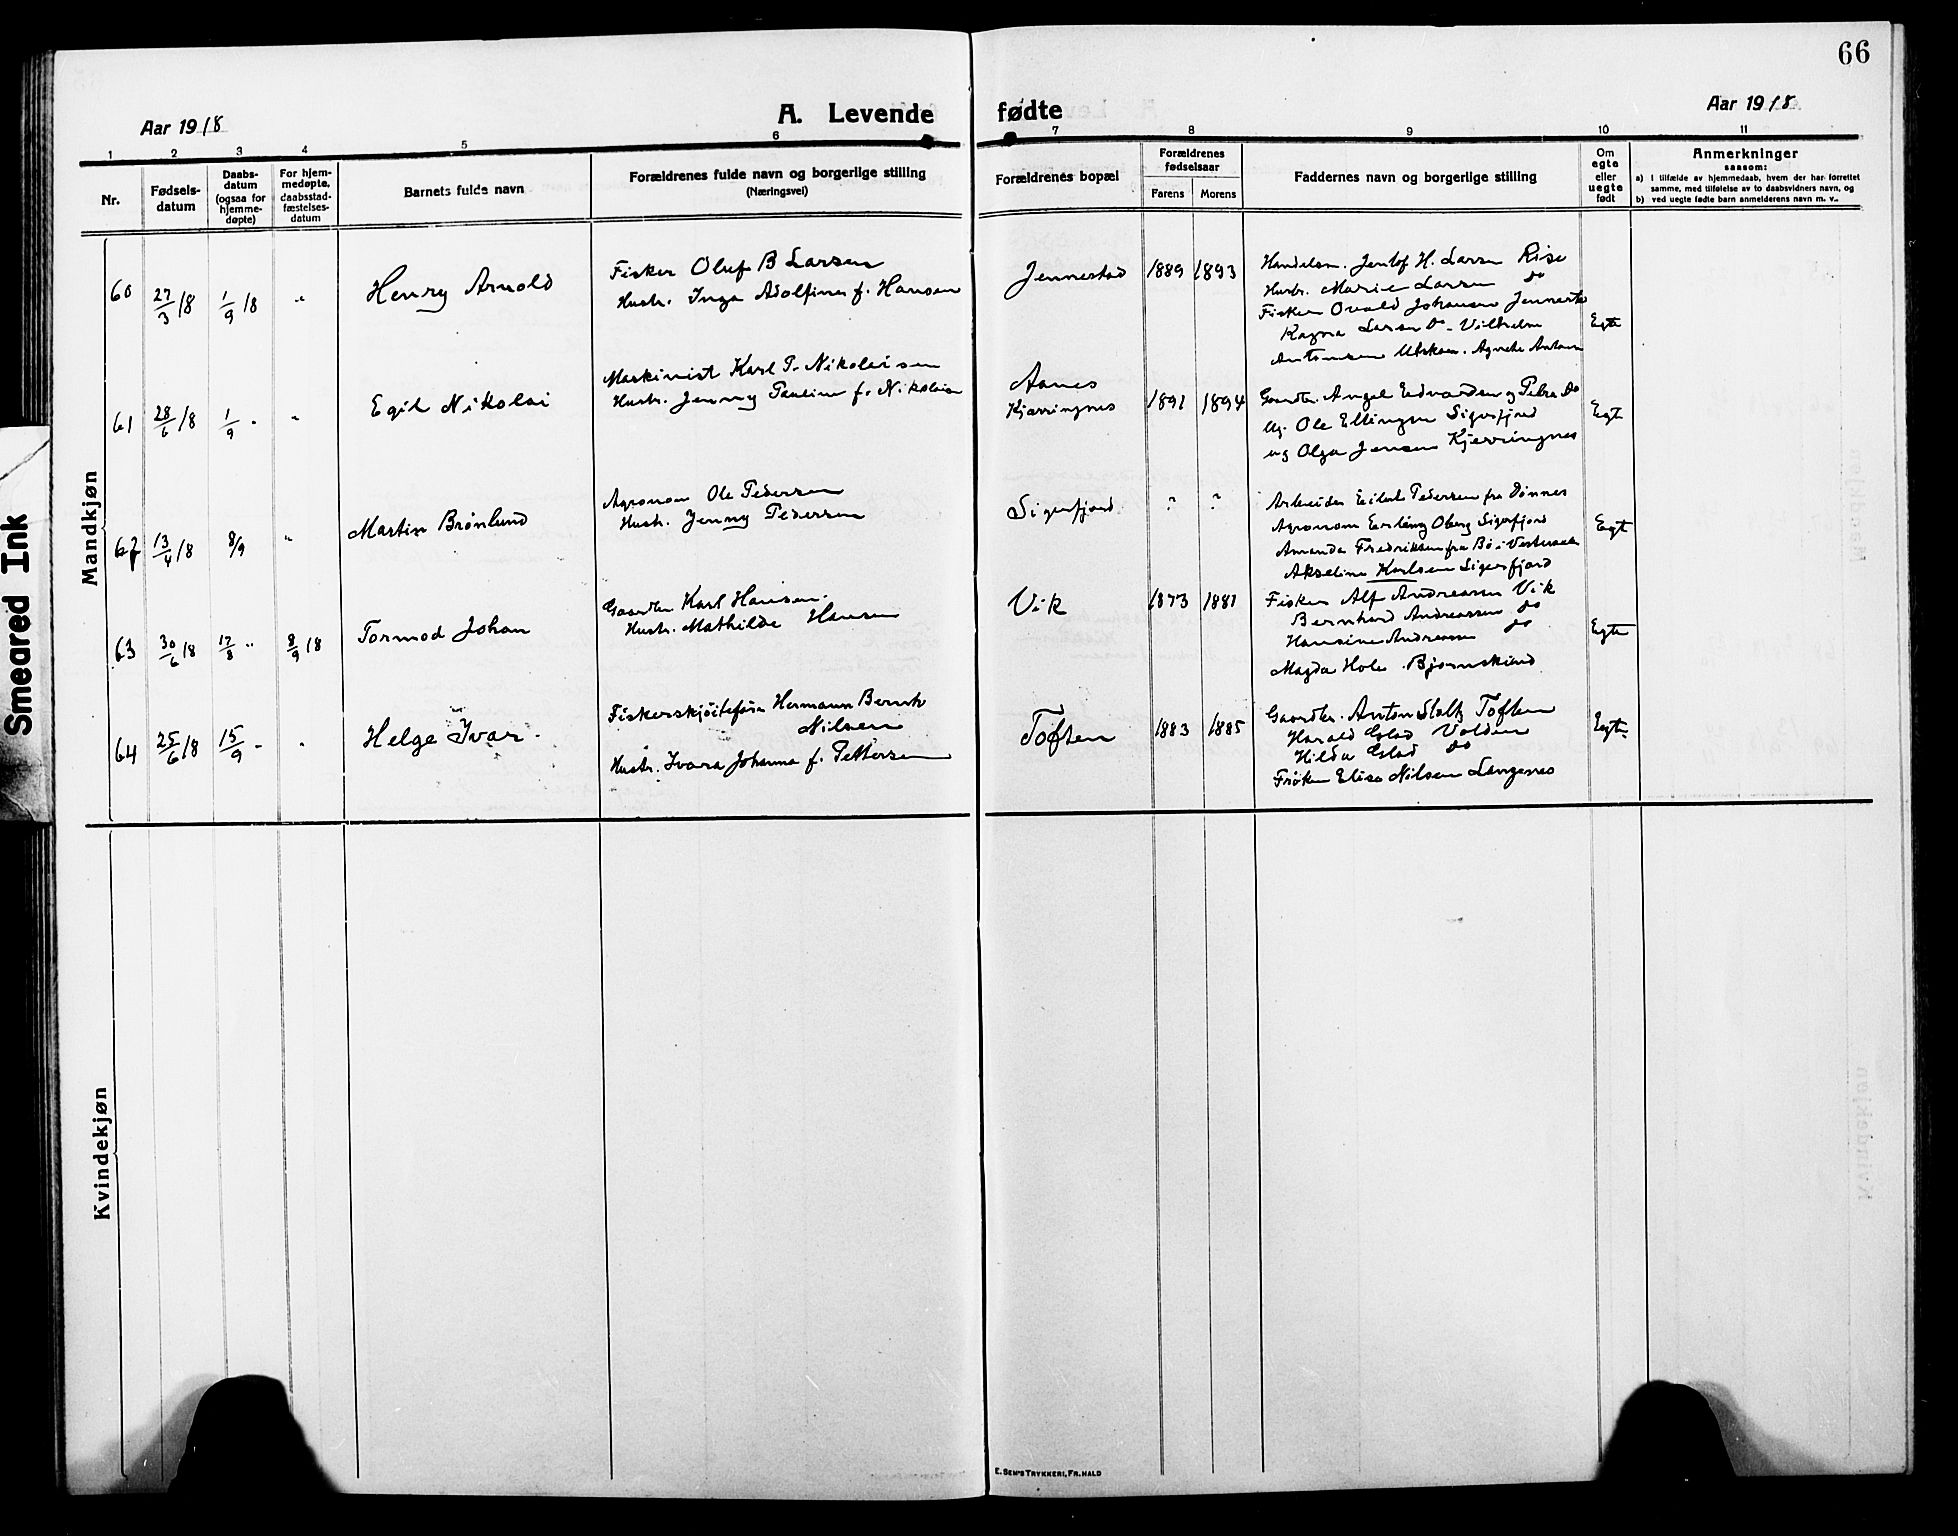 66
Aar 1918
A. Levende fødte
Aar 1918
1 2 3 4 5 6 7 8 9 10 11
Nr.
Fødsels-
datum
Daabs-
datum
(ogsaa for
hjemme-
døpte)
For hjem-
medøpte,
daabsstad-
fæstelses-
datum
Barnets fulde navn
Forældrenes fulde navn og borgerlige stilling
(Næringsvei)
Forældrenes bopæl
Forældrenes
fødselsaar
Farens Morens
Faddernes navn og borgerlige stilling
Om
egte
eller
uegte
født
Anmerkninger
saasom:
a) I tilfælde av hjemmedaab, hvem der har forrettet
samme, med tilføielse av to daabsvidners navn, og
b) ved uegte fødte barn anmelderens navn m. v..
Mandkjøn
60 27/3 18 1/9 18 "
Henry Arnold
Fisker Oluf B Larsen
Hustr. Inga Adolfine f. Hansen
Jennestad 1889 1893
Handelsm. Jentof H. Larsen Rise
Hustr. Marie Larsen do
Fisker Osvald Johansen Jennestad
Ragna Larsen Do - Vilhelm
Antonsen . Agnethe Antons
Egte
61 28/6 18 1/9 - "
Egil Nikolai
Maskinist Karl P. Nikolaisen
Hustr. Jenny Pauline f. Nikolaisen
Aanes
Kjerringnes
1891 1894
Gaardbr. Angel Edvardsen og Petra Do
Ug. Ole Ellingsen Sigerfjord
og Olga Jensen Kjerringnes
Egt
62 13/4 18 8/9 "
Martin Brønlund
Agronom Ole Pedersen
Hustr. Jenny Pedersen
Sigerfjord ? ?
Arbeider Eilert Pedersen fra Dønnes
Agronom Erling Oberg Sigerfjord
Amanda Fredriksen fra Bø i Vesteraalen
Akseline Karlsen Sigerfjord
Egt
63 30/6 18 17/8 " 8/9 18
Tormod Johan
Gaardbr Karl Hansen.
Hustr. Mathilde Hansen
Vik 1873 1881
Fisker Alf Andreassen Vik
Bernhard Andreassen do
Hansine Andreassen do
Magda Hole . Bjørnskind
Egte
64 25/6 18 15/9 - "
Helge Ivar -
Fiskerskjøitefører Hermann Bernh
Nilsen
Hustr. Ivara Johanna f. Pettersen
Toften 1883 1885
Gaardbr. Anton Toften
Harald Volden
Hilda do
Frøken Elise Nilsen Langenes
Egte
Kvindekjøn
E. Sem's Trykkeri, Fr.hald
Smeared Ink